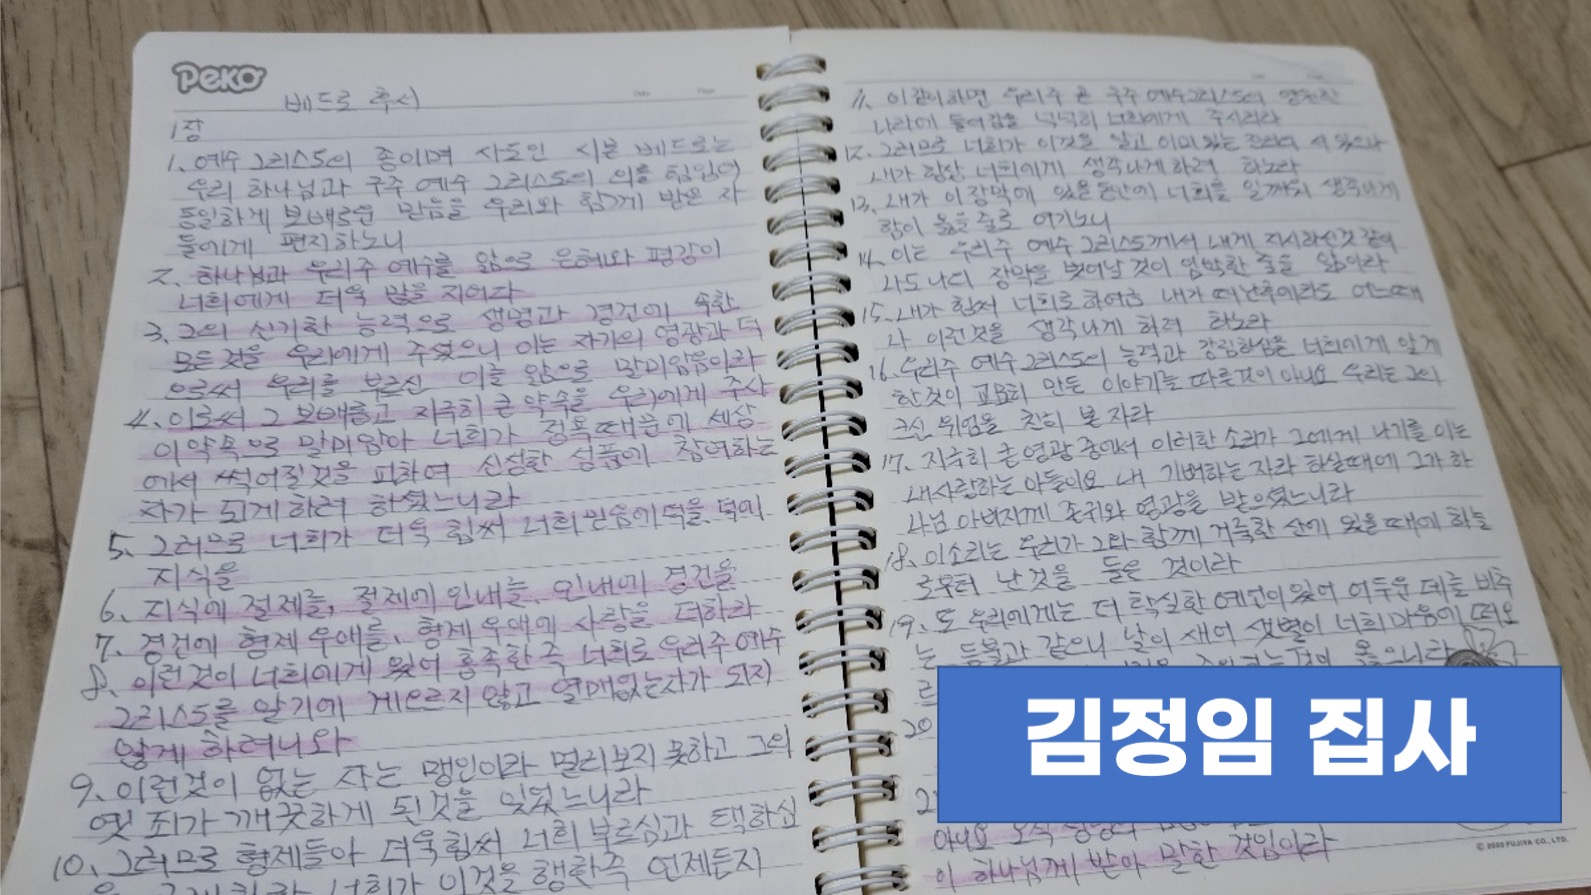 Peko
베드로 후서
1장
1. 예수 그리스도의 종이며 사도인 시몬 베드로는
우리 하나님과 구주 예수 그리스도의 의를 힘입어
동일하게 보배로운 믿음을 우리와 함께 받은 자
들에게 편지하노니
2. 하나님과 우리 주 예수를 앎으로 은혜와 평강이
너희에게 더욱 많을지어다
3. 그의 신기한 능력으로 생명과 경건에 속한
모든 것을 우리에게 주셨으니 이는 자기의 영광과 덕
으로써 우리를 부르신 이를 앎으로 말미암음이라
4. 이로써 그 보배롭고 지극히 큰 약속을 우리에게 주사
이 약속으로 말미암아 너희가 정욕 때문에 세상
에서 썩어질 것을 피하여 신성한 성품에 참여하는
자가 되게 하려 하셨느니라
5. 그러므로 너희가 더욱 힘써 너희 믿음에 덕을 덕에
지식을
6. 지식에 절제를, 절제에 인내를, 인내에 경건을
7. 경건에 형제 우애를, 형제 우애에 사랑을 더하라
8. 이런 것이 너희에게 있어 흡족한즉 너희로 우리 주 예수
그리스도를 알기에 게으르지 않고 열매 없는 자가 되지
않게 하려니와
9. 이런 것이 없는 자는 맹인이라 멀리 보지 못하고 그의
옛 죄가 깨끗하게 된 것을 잊었느니라
10. 그러므로 형제들아 더욱 힘써 너희 부르심과 택하심
너희가 이것을 행한즉 언제든지
11. 이같이 하면 우리 주 곧 구주 예수 그리스도의 영원한
나라에 들어감을 넉넉히 너희에게 주시리라
12. 그러므로 너희가 이것을 알고 이미 있는 진리에 서 있으나
내가 항상 너희에게 생각나게 하려 하노라
13. 내가 이 장막에 있을 동안에 너희를 일깨워 생각나게
함이 옳은 줄로 여기노니
14. 이는 우리 주 예수 그리스도께서 내게 지시하신 것 같이
나도 나의 장막을 벗어날 것이 임박한 줄을 앎이라
15. 내가 힘써 너희로 하여금 내가 떠난 후에라도 어느 때
나 이런 것을 생각나게 하려 하노라
16. 우리 주 예수 그리스도의 능력과 강림하심을 너희에게 알게
한 것이 교묘히 만든 이야기를 따른 것이 아니요 우리는 그의
크신 위엄을 친히 본 자라
17. 지극히 큰 영광 중에서 이러한 소리가 그에게 나기를 이는
내 사랑하는 아들이요 내 기뻐하는 자라 하실 때에 그가 하
나님 아버지께 존귀와 영광을 받으셨느니라
18. 이 소리는 우리가 그와 함께 거룩한 산에 있을 때에 하늘
로부터 난 것을 들은 것이라
19. 또 우리에게는 더 확실한 예언이 있어 어두운 데를 비추
는 등불과 같으니 날이 새어 샛별이 너희 마음에 떠오
옳으니라
20
아니요 오직
이 하나님께 받아 말한 것임이라
김정임 집사
© 2020 FUJIYA CO., LTD.